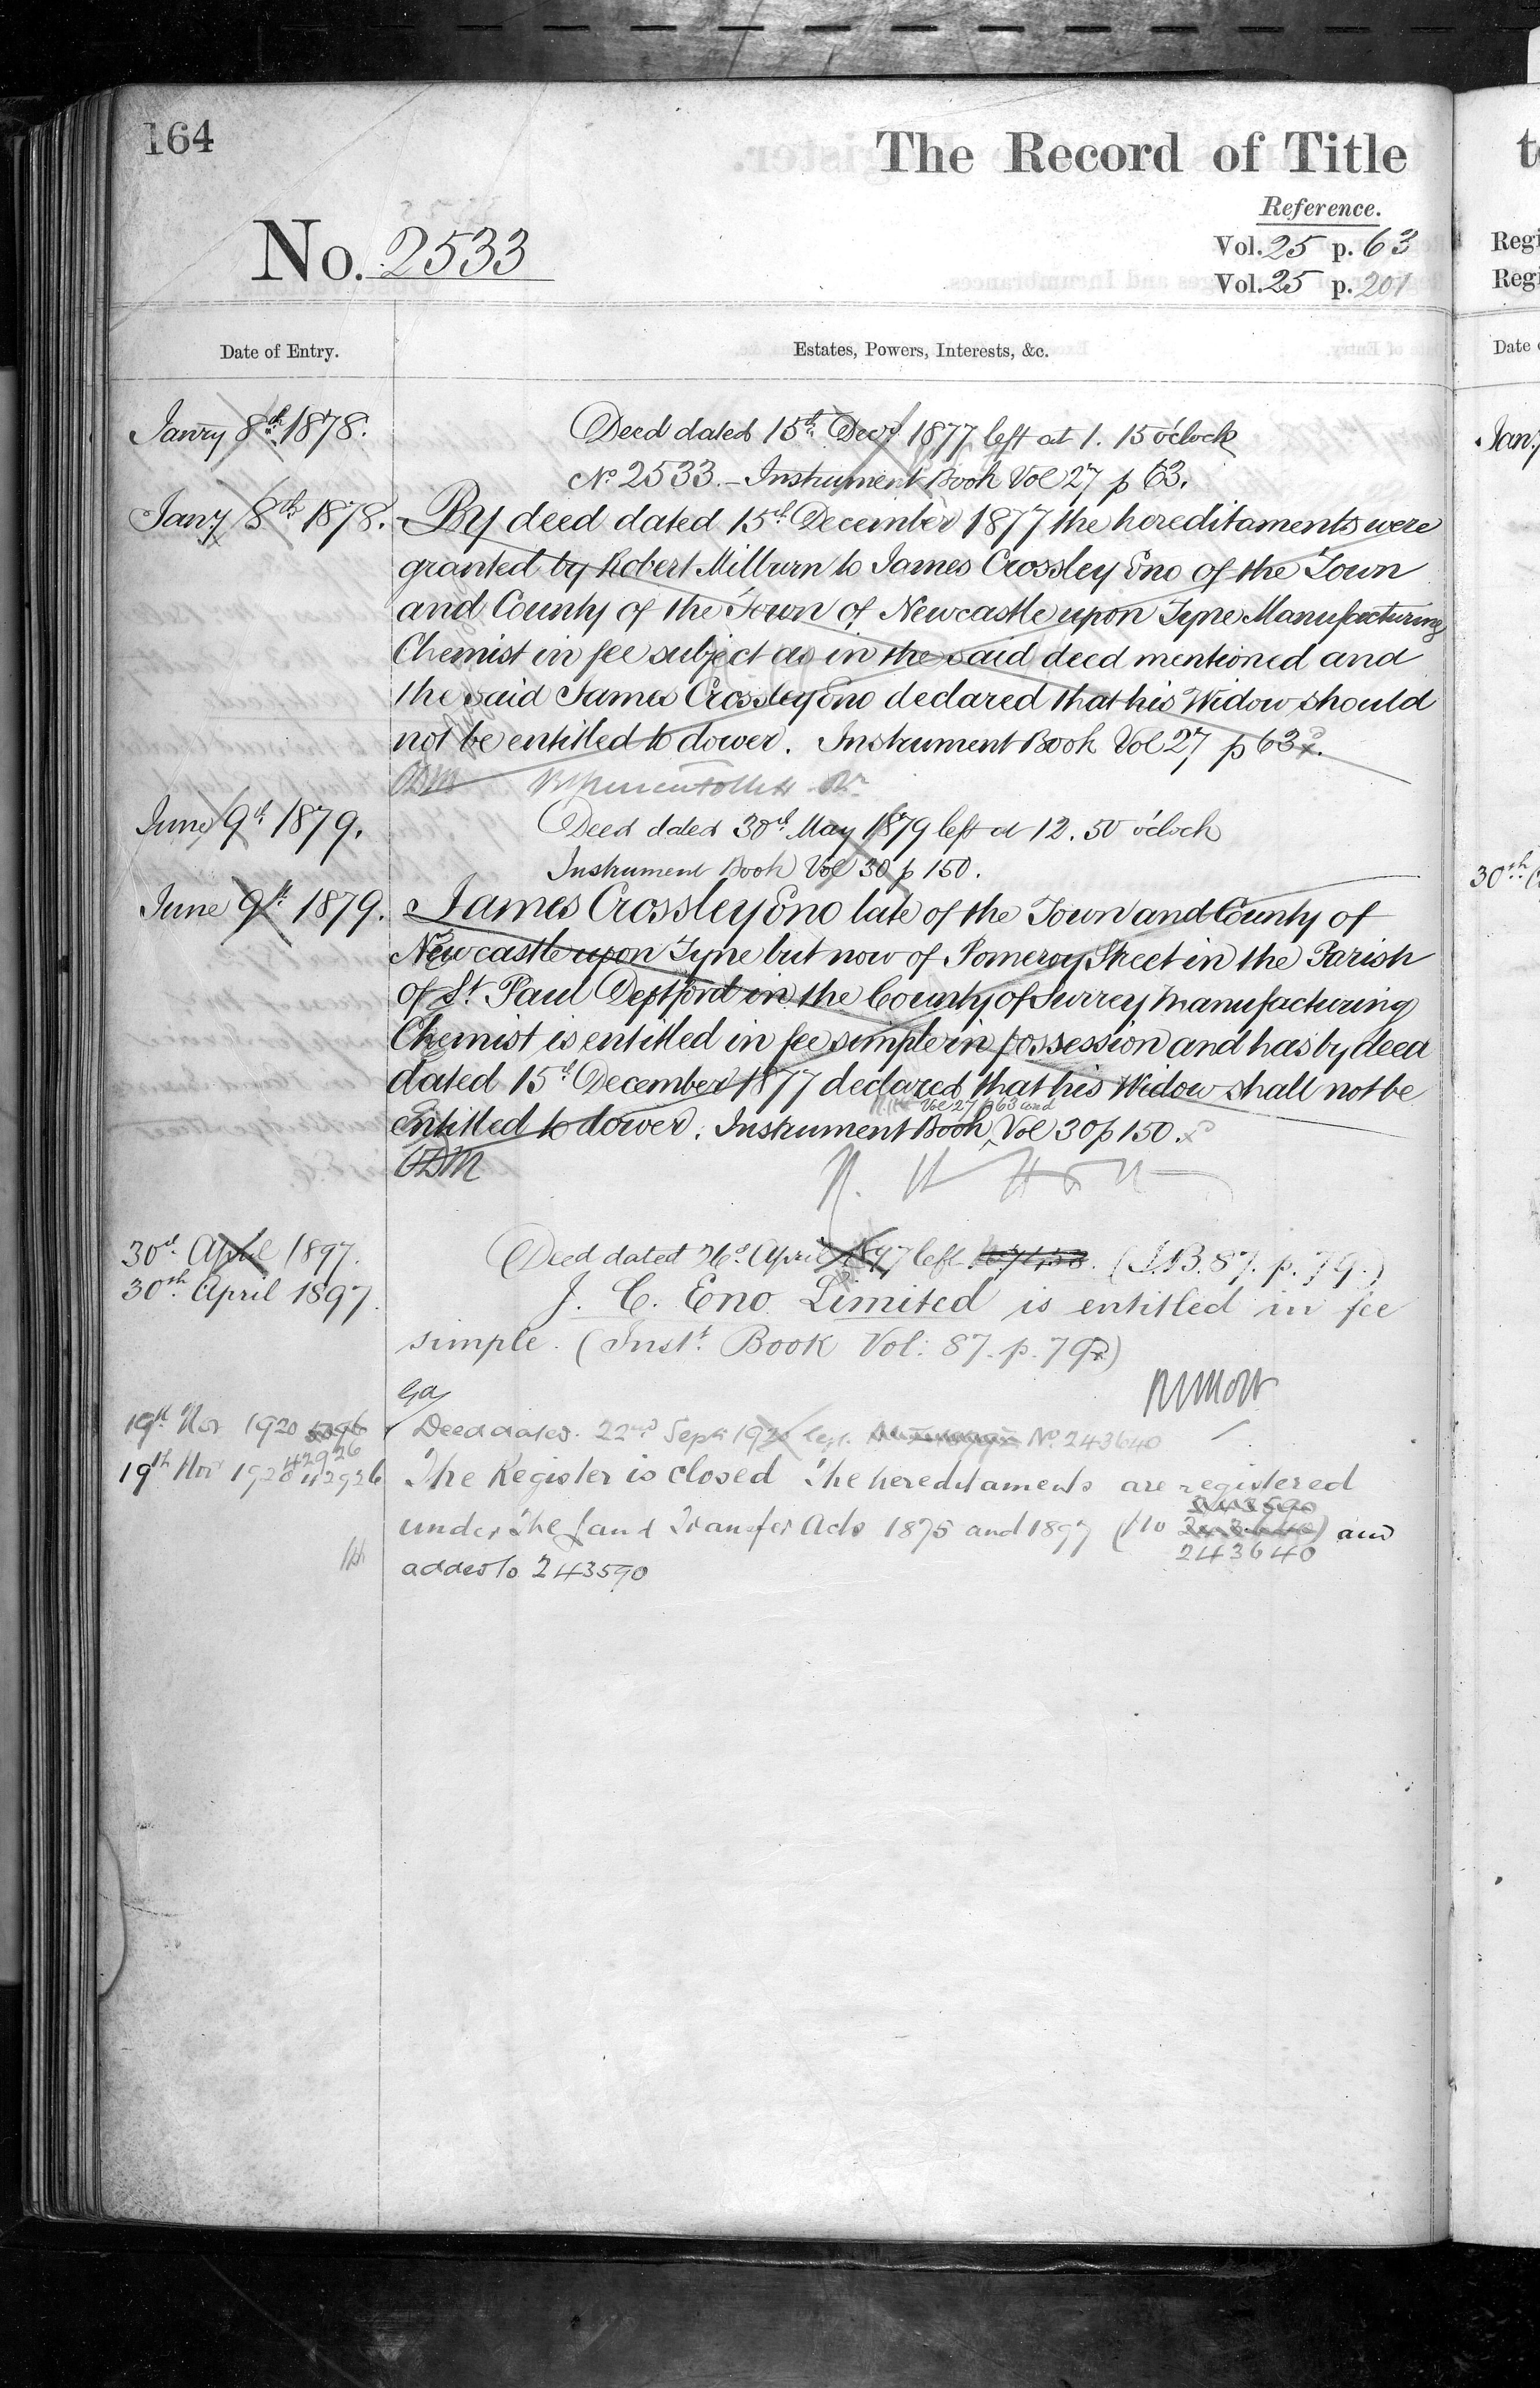 164
The Record of Title
Reference.
No. 2533
Vol. 25 p. 63
Vol. 25 p. 201
Date of Entry.
Estates, Powers, Interests, &c.
Janry 8th 1878.
Deed dated 15th Decr 1877 left at 1. 15 o'clock
No 2533. - Instrument Book Vol 27 p 63.
Jany 8th 1878.
By deed dated 15th December 1877 the hereditaments were
granted by Robert Milburn to James Crossley Eno of the Town
and County of the Town of Newcastle upon Tyne Manufacturing
Chemist in fee subject as in the said deed mentioned and
the said James Crossley Eno declared that his Widow should
not be entitled to dower. Instrument Book Vol 27 p 63.
June 9th 1879.
Deed dated 30th May 1879 left at 12. 50 o'clock
Instrument Book Vol 30 p 150.
June 9th 1879.
James Crossley Eno late of the Town and County of
Newcastle upon Tyne but now of Pomeroy Street in the Parish
of St. Paul Deptford in the County of Surrey Manufacturing
Chemist is entitled in fee simple in possession and has by deed
dated 15th December 1877 declared that his Widow shall not be
Vol 27 p 63 and
Entitled to dower. Instrument Book Vol 30 p 150.
30th April 1897.
Deed dated April 1897 left (I.B. 87. p. 79.)
30th April 1897.
J. C. Eno Limited is entitled in fee
simple. (Inst. Book Vol: 87. p. 79)
19th Nov 1920
Deed dated 22nd Sept 1920 No. 243640
42926
19th Nov 1920 42926
The Register is closed The hereditaments are registered
243590
under the Land Transfer Acts 1875 and 1897 (No 243640) and
243640
added to 243590
to
Regi
Regi
Date o
Jany
30th